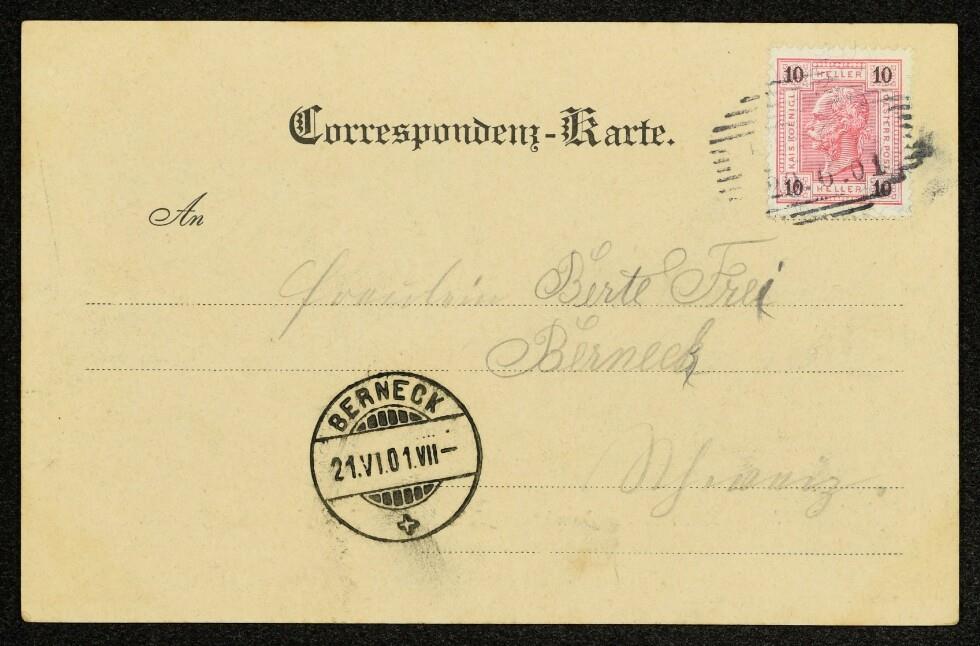 10 HELLER 10
KAIS. KOENIGL.
ÖSTERR. POST
10 HELLER 10
20.6.01
Correspondenz-Karte.
An
Fräulein Berte Frei
Berneck
Schweiz.
BERNECK
21.VI.01.VII-